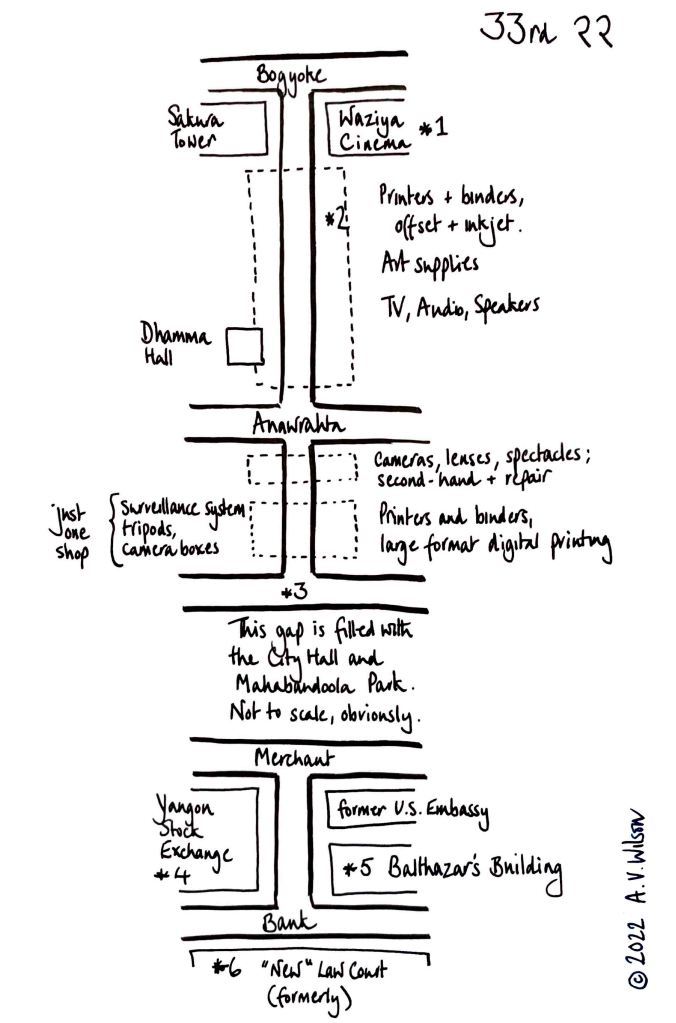 33rd 22
Bogyoke
Sakura
Tower
Waziya
Cinema *1
*2
Printers + binders,
offset + inkjet.
Art supplies
TV, Audio, Speakers
Dhamma
Hall
Anawrahta
Cameras, lenses, spectacles;
second-hand + repair
just
one
shop
Surveillance system
tripods,
camera boxes
Printers and binders,
large format digital printing
*3
This gap is filled with
the City Hall and
Mahabandoola Park.
Not to scale, obviously.
Merchant
Yangon
Stock
Exchange
*4
former U.S. Embassy
*5 Balthazar's Building
Bank
*6 "New" Law Court
(formerly)
© 2022 A.V. Wilson